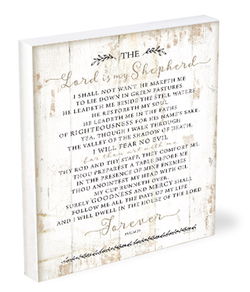 THE
Lord is my Shepherd
I SHALL NOT WANT HE MAKETH ME
TO LIE DOWN IN GREEN PASTURES
HE LEADETH ME BESIDE THE STILL WATERS
HE RESTORETH MY SOUL
HE LEADETH ME IN THE PATHS
OF RIGHTEOUSNESS FOR HIS NAME'S SAKE.
YEA, THOUGH I WALK THROUGH
THE VALLEY OF THE SHADOW OF DEATH,
I WILL FEAR NO EVIL
for thou art with me
THY ROD AND THY STAFF, THEY COMFORT ME.
THOU PREPAREST A TABLE BEFORE ME
IN THE PRESENCE OF MINE ENEMIES
THOU ANOINTEST MY HEAD WITH OIL
MY CUP RUNNETH OVER.
SURELY GOODNESS AND MERCY SHALL
FOLLOW ME ALL THE DAYS OF MY LIFE
AND I WILL DWELL IN THE HOUSE OF THE LORD
Forever